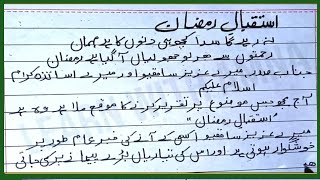 استقبال رمضان
نہ رہے گا سدا کچھ ہی دنوں کا ہے مہمان
رحمتوں سے بھر لو جھولیاں آگیا ہے رمضان
جناب صدر میرے عزیز ساتھیو اور میرے اساتذہ کرام
اسلام علیکم
آج مجھے جس موضوع پر تقریر کرنے کا موقع ملا ہے وہ ہے
"استقبال رمضان"
میرے عزیز ساتھیو کسی کے آنے کی خبر عام طور پر
خوشگوار ہوتی ہے اور اس کی تیاریاں بڑے پیمانے پر کی جاتی